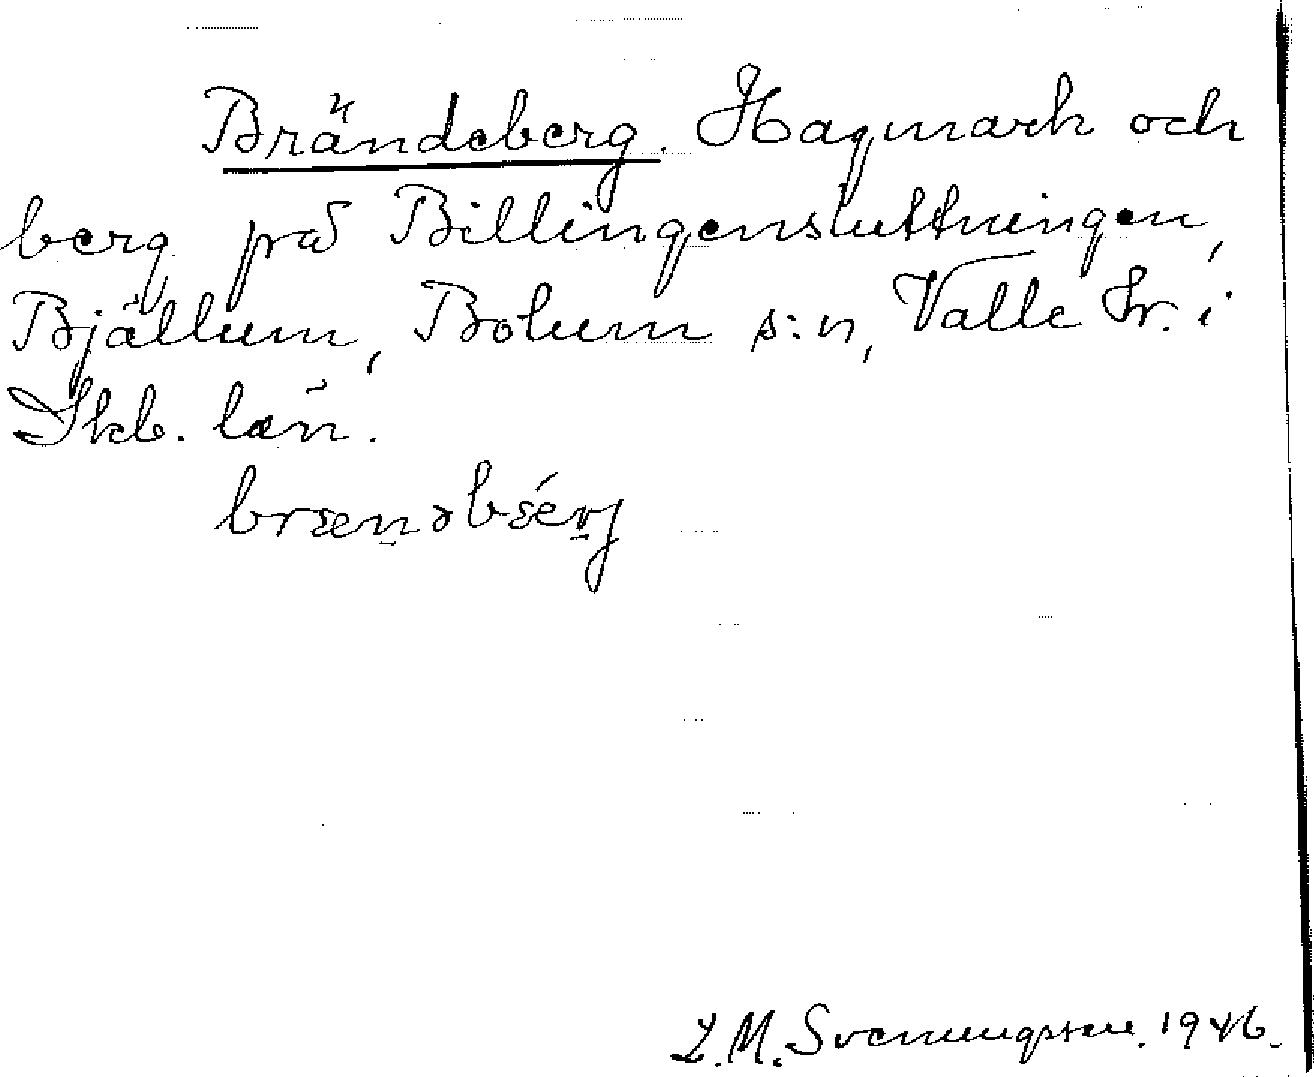 Brändeberg. Hagmark och
berg på Billingensluttningen,
Bjällum, Bolum s:n, Valle hr. i
Skb. län.
brænəbǽrj
L.M. Svenungsson. 1946.